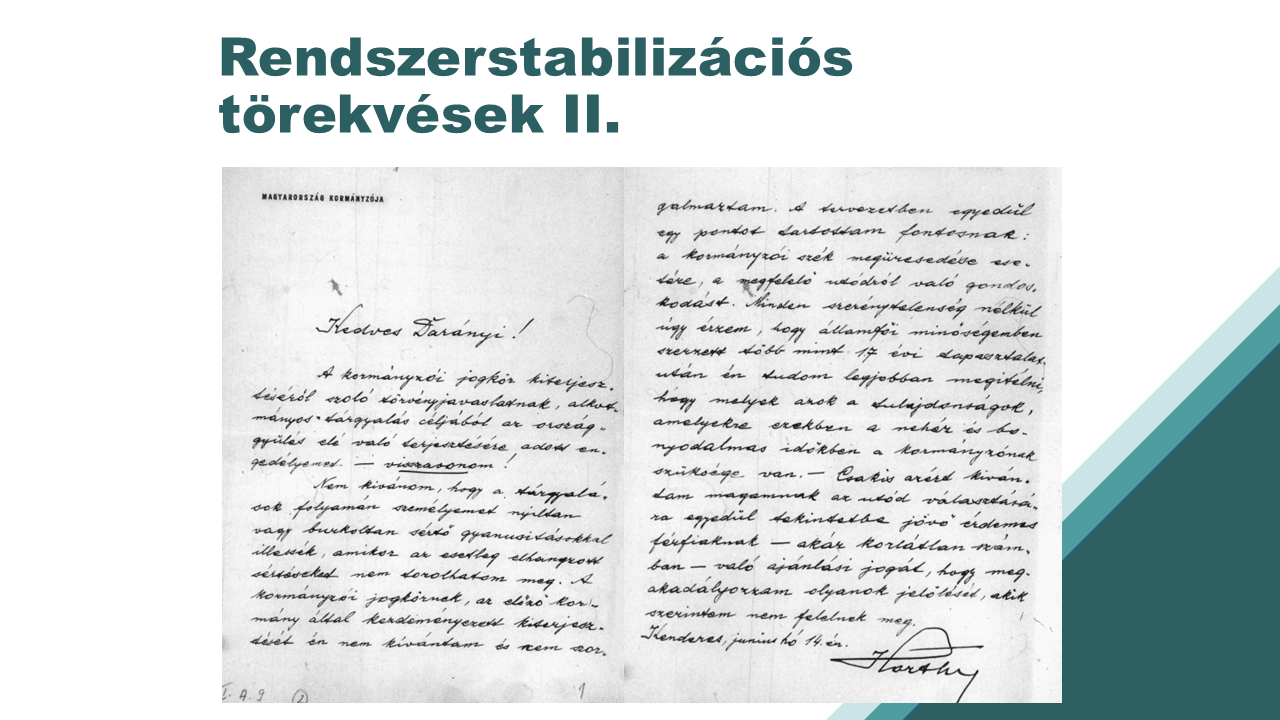 Rendszerstabilizációs
törekvések II.
MAGYARORSZÁG KORMÁNYZÓJA
Kedves Darányi!
A kormányzói jogkör kiterjesz-
téséről szoló törvényjavaslatnak, alkot-
mányos tárgyalás céljából az ország-
gyülés elé való terjesztésére adott en-
gedélyemet — visszavonom!
Nem kivánom, hogy a tárgyalá-
sok folyamán személyemet nyiltan
vagy burkoltan sértő gyanusitásokkal
illessék, amikor az esetleg elhangzott
sértéseket nem torolhatom meg. A
kormányzói jogkörnek, az előző kor-
mány által kezdeményezett kiterjesz-
tését én nem kívántam és nem szor-
galmaztam. A tervezetben egyedül
egy pontot tartottam fontosnak:
a kormányzói szék megüresedése ese-
tére, a megfelelő utódról való gondos-
kodást. Minden szerénytelenség nélkül
úgy érzem, hogy államfői minőségemben
szerzett több mint 17 évi tapasztalat
után én tudom legjobban megitélni,
hogy melyek azok a tulajdonságok,
amelyekre ezekben a nehéz és bo-
nyodalmas időkben a kormányzónak
szüksége van. — Csakis azért kiván-
tam magamnak az utód választásá-
ra egyedül tekintetbe jövő érdemes
férfiaknak — akár korlátlan szám-
ban — való ajánlási jogát, hogy meg-
akadályozzam olyanok jelölését, akik
szerintem nem felelnek meg.
Kenderes, junius hó 14.én.
Horthy
I. A. 9 2 1